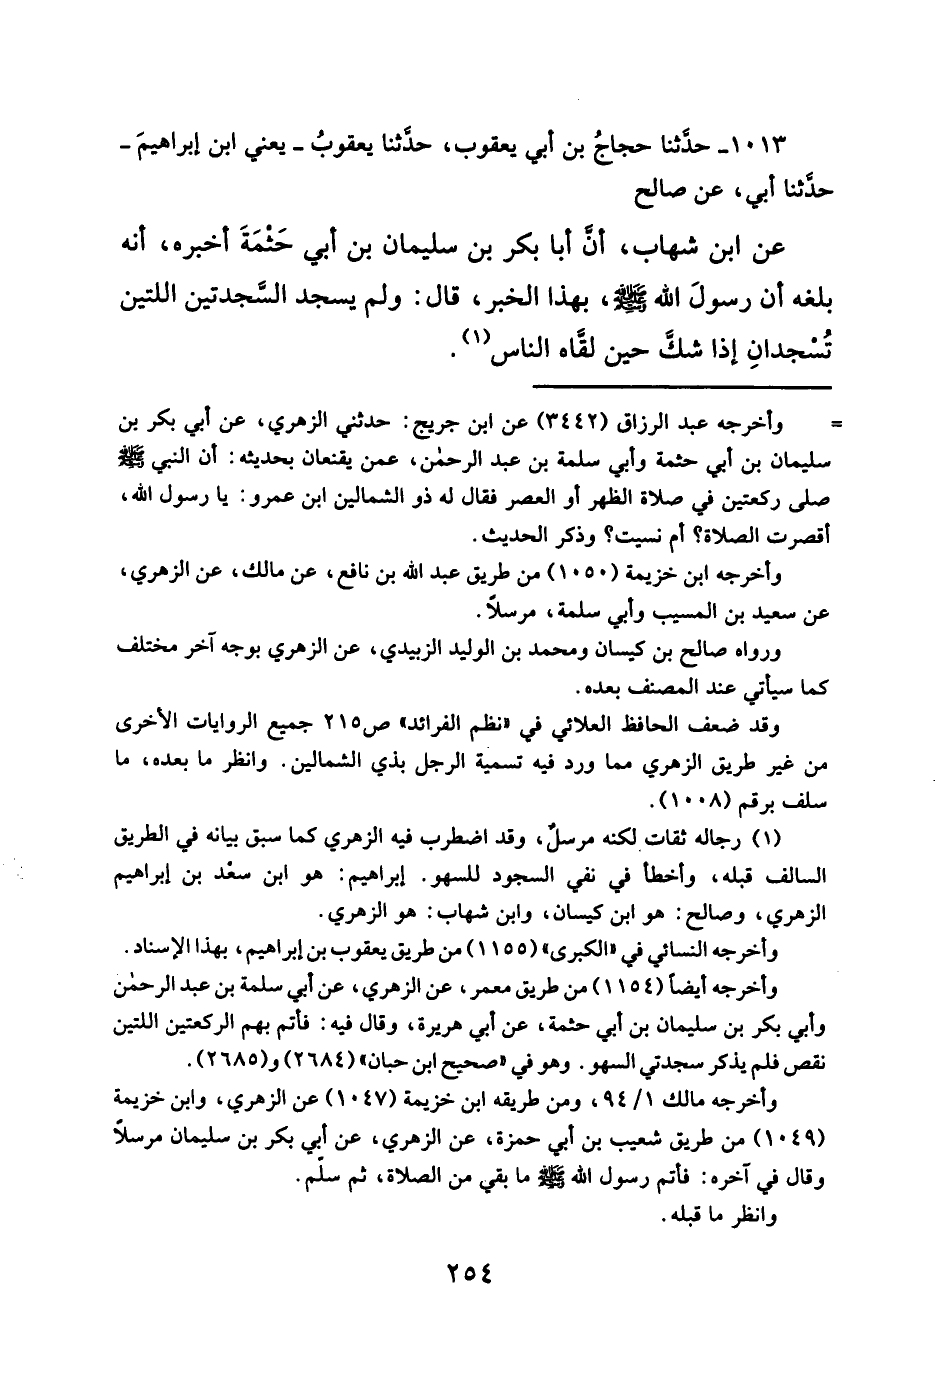 ١٠١٣ـ حدَّثنا حجاجُ بن أبي يعقوب، حدَّثنا يعقوبُ ـ يعني ابن إبراهيمَ ـ
حدَّثنا أبي، عن صالح
عن ابن شهاب، أنَّ أبا بكر بن سليمان بن أبي حَثْمَةَ أخبره، أنه
بلغه أن رسولَ الله ﷺ، بهذا الخبر، قال: ولم يسجد السَّجدتين اللتين
تُسْجدانِ إذا شكَّ حين لقَّاه الناس(١).
= وأخرجه عبد الرزاق (٣٤٤٢) عن ابن جريج: حدثني الزهري، عن أبي بكر بن
سليمان بن أبي حثمة وأبي سلمة بن عبد الرحمٰن، عمن يقنعان بحديثه: أن النبي ﷺ
صلى ركعتين في صلاة الظهر أو العصر فقال له ذو الشمالين ابن عمرو: يا رسول الله،
أقصرت الصلاة؟ أم نسيت؟ وذكر الحديث.
وأخرجه ابن خزيمة (١٠٥٠) من طريق عبد الله بن نافع، عن مالك، عن الزهري،
عن سعيد بن المسيب وأبي سلمة، مرسلاً.
ورواه صالح بن كيسان ومحمد بن الوليد الزبيدي، عن الزهري بوجه آخر مختلف
كما سيأتي عند المصنف بعده.
وقد ضعف الحافظ العلائي في «نظم الفرائد» ص٢١٥ جميع الروايات الأخرى
من غير طريق الزهري مما ورد فيه تسمية الرجل بذي الشمالين. وانظر ما بعده، ما
سلف برقم (١٠٠٨).
(١) رجاله ثقات لكنه مرسلٌ، وقد اضطرب فيه الزهري كما سبق بيانه في الطريق
السالف قبله، وأخطأ في نفي السجود للسهو. إبراهيم: هو ابن سعْد بن إبراهيم
الزهري، وصالح: هو ابن كيسان، وابن شهاب: هو الزهري.
وأخرجه النسائي في «الكبرى» (١١٥٥) من طريق يعقوب بن إبراهيم، بهذا الإسناد.
وأخرجه أيضاً (١١٥٤) من طريق معمر، عن الزهري، عن أبي سلمة بن عبد الرحمٰن
وأبي بكر بن سليمان بن أبي حثمة، عن أبي هريرة، وقال فيه: فأتم بهم الركعتين اللتين
نقص فلم يذكر سجدتي السهو. وهو في «صحيح ابن حبان» (٢٦٨٤) و(٢٦٨٥).
وأخرجه مالك ١/ ٩٤، ومن طريقه ابن خزيمة (١٠٤٧) عن الزهري، وابن خزيمة
(١٠٤٩) من طريق شعيب بن أبي حمزة، عن الزهري، عن أبي بكر بن سليمان مرسلاً
وقال في آخره: فأتم رسول الله ﷺ ما بقي من الصلاة، ثم سلَّم.
وانظر ما قبله.
٢٥٤